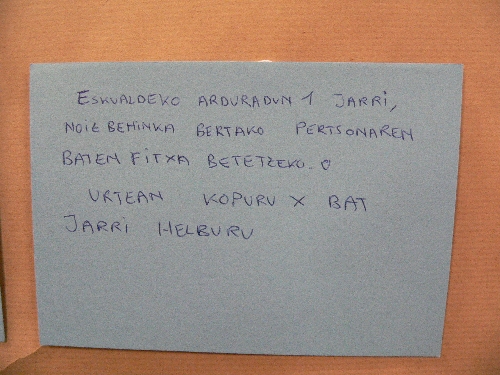 ESKUALDEKO ARDURADUN 1 JARRI,
NOIZ BEHINKA BERTAKO PERTSONAREN
BATEN FITXA BETETZEKO.
URTEAN KOPURU X BAT
JARRI HELBURU